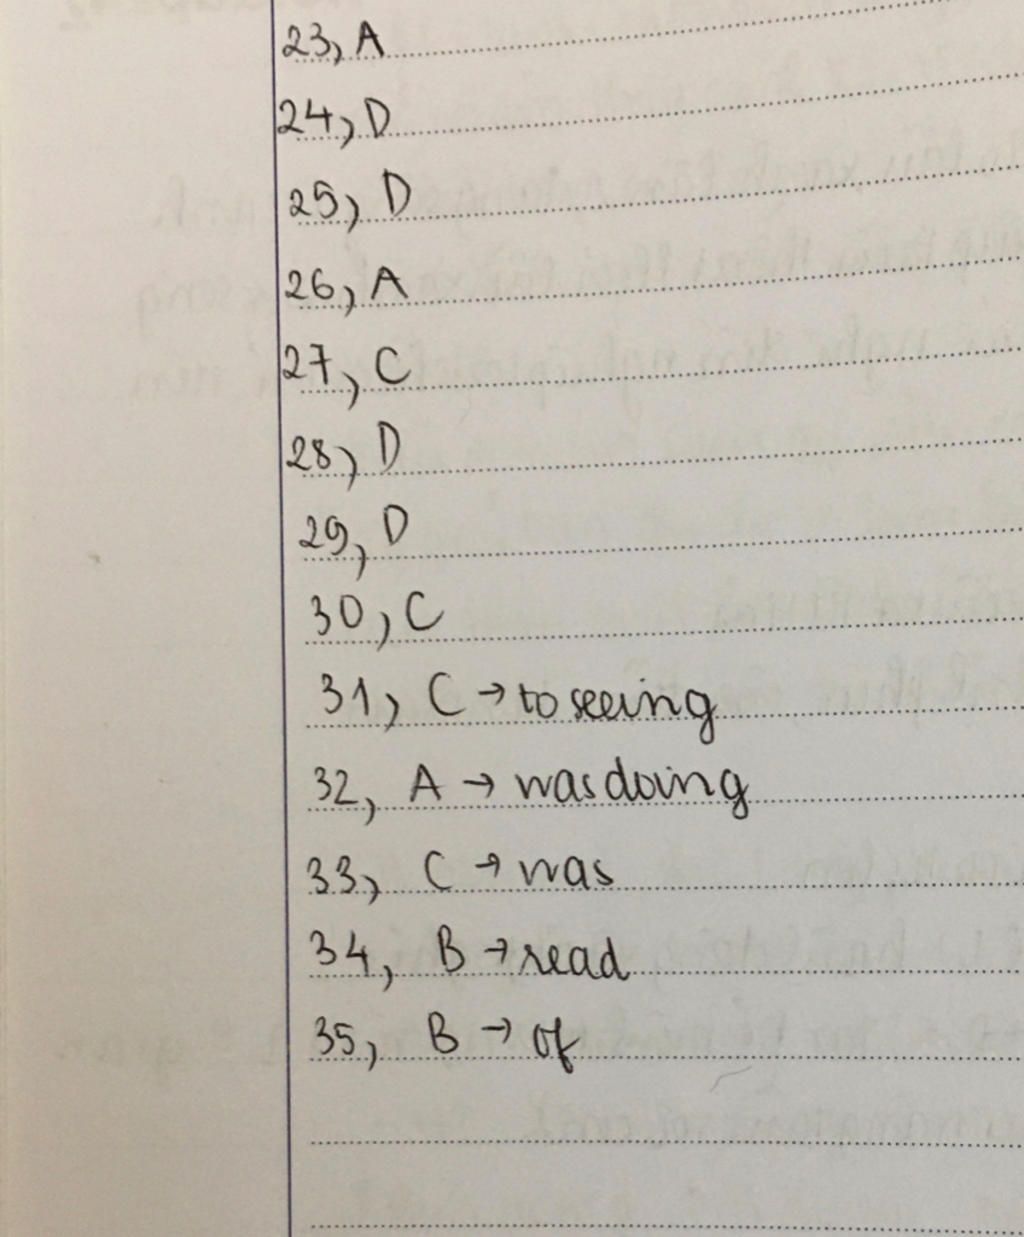 23, A
24, D
25, D
26, A
27, C
28, D
29, D
30, C
31, C → to seeing
32, A → was doing
33, C → was
34, B → read
35, B → of